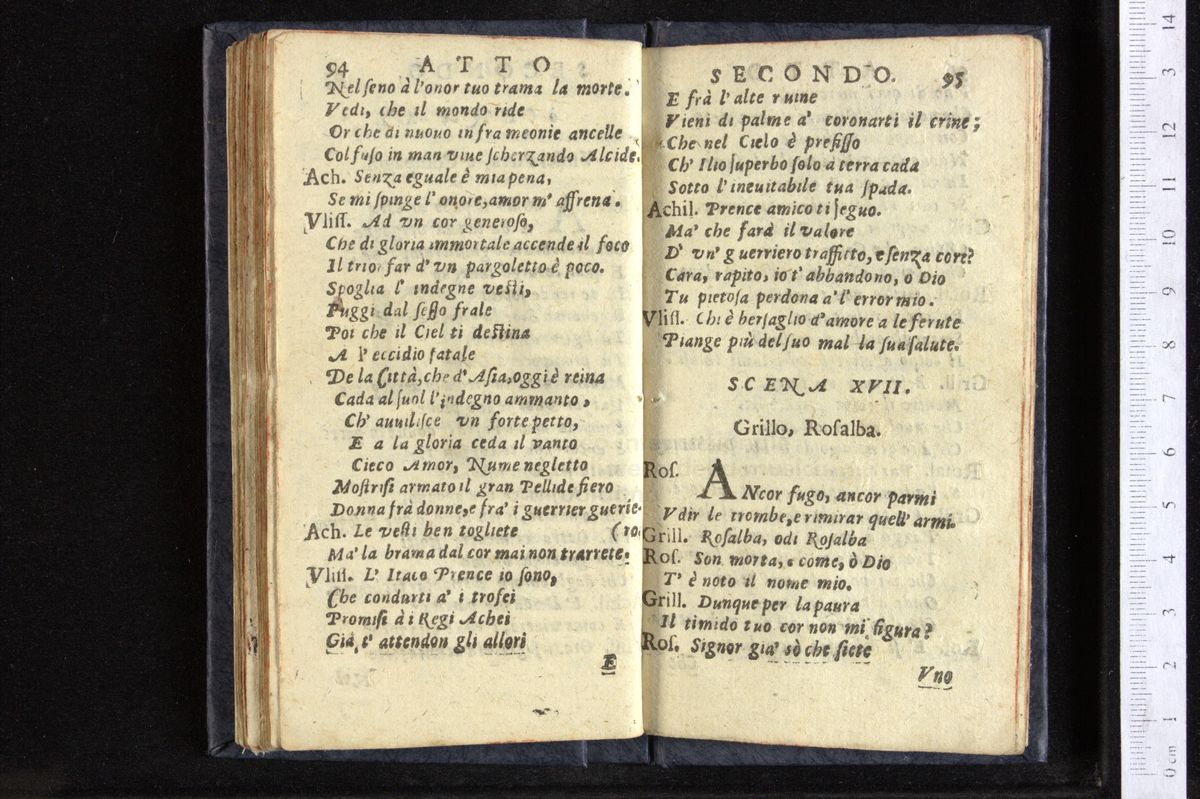 94 ATTO
Nel seno à l'onor tuo trama la morte.
Vedi, che il mondo ride
Or che di nuovo in fra meonie ancelle
Col fuso in man viue scherzando Alcide.
Ach. Senza eguale è mia pena,
Se mi spinge l'onore, amor m'affrena.
Vliss. Ad vn cor generoso,
Che di gloria immortale accende il foco
Il trionfar d'vn pargoletto è poco.
Spoglia l'indegne vesti,
Fuggi dal sesso frale
Poi che il Ciel ti destina
A l'eccidio fatale
De la Città, che d'Asia, oggi è reina
Cada al suol l'indegno ammanto,
Ch'auuilisce vn forte petto,
E a la gloria ceda il vanto
Cieco Amor, Nume negletto
Mostrisi armato il gran Pellide fiero
Donna frà donne, e fra' i guerrier guerie-
Ach. Le vesti ben togliete (ro.
Ma' la brama dal cor mai non trarrete.
Vliss. L'Itaco Prence io sono,
Che condurti a' i trofei
Promisi à i Regi Achei
Già t'attendon gli allori
E
SECONDO. 95
E frà l'alte ruine
Vieni di palme a' coronarti il crine;
Che nel Cielo è prefisso
Ch'Ilio superbo solo a terra cada
Sotto l'ineuitabile tua spada.
Achil. Prence amico ti seguo.
Ma' che farà il valore
D'vn'guerriero trafficto, e senza core?
Cara, rapito, io t'abbandono, o Dio
Tu pietosa perdona a'l'error mio.
Vliss. Chi è bersaglio d'amore a le ferute
Piange più del suo mal la sua salute.
SCENA XVII.
Grillo, Rosalba.
Ros. ANcor fugo, ancor parmi
Vdir le trombe, e rimirar quell'armi.
Grill. Rosalba, odi Rosalba
Ros. Son morta, e come, ò Dio
T'è noto il nome mio.
Grill. Dunque per la paura
Il timido tuo cor non mi figura?
Ros. Signor gia' sò che siete
Vno
0 cm 1 2 3 4 5 6 7 8 9 10 11 12 13 14